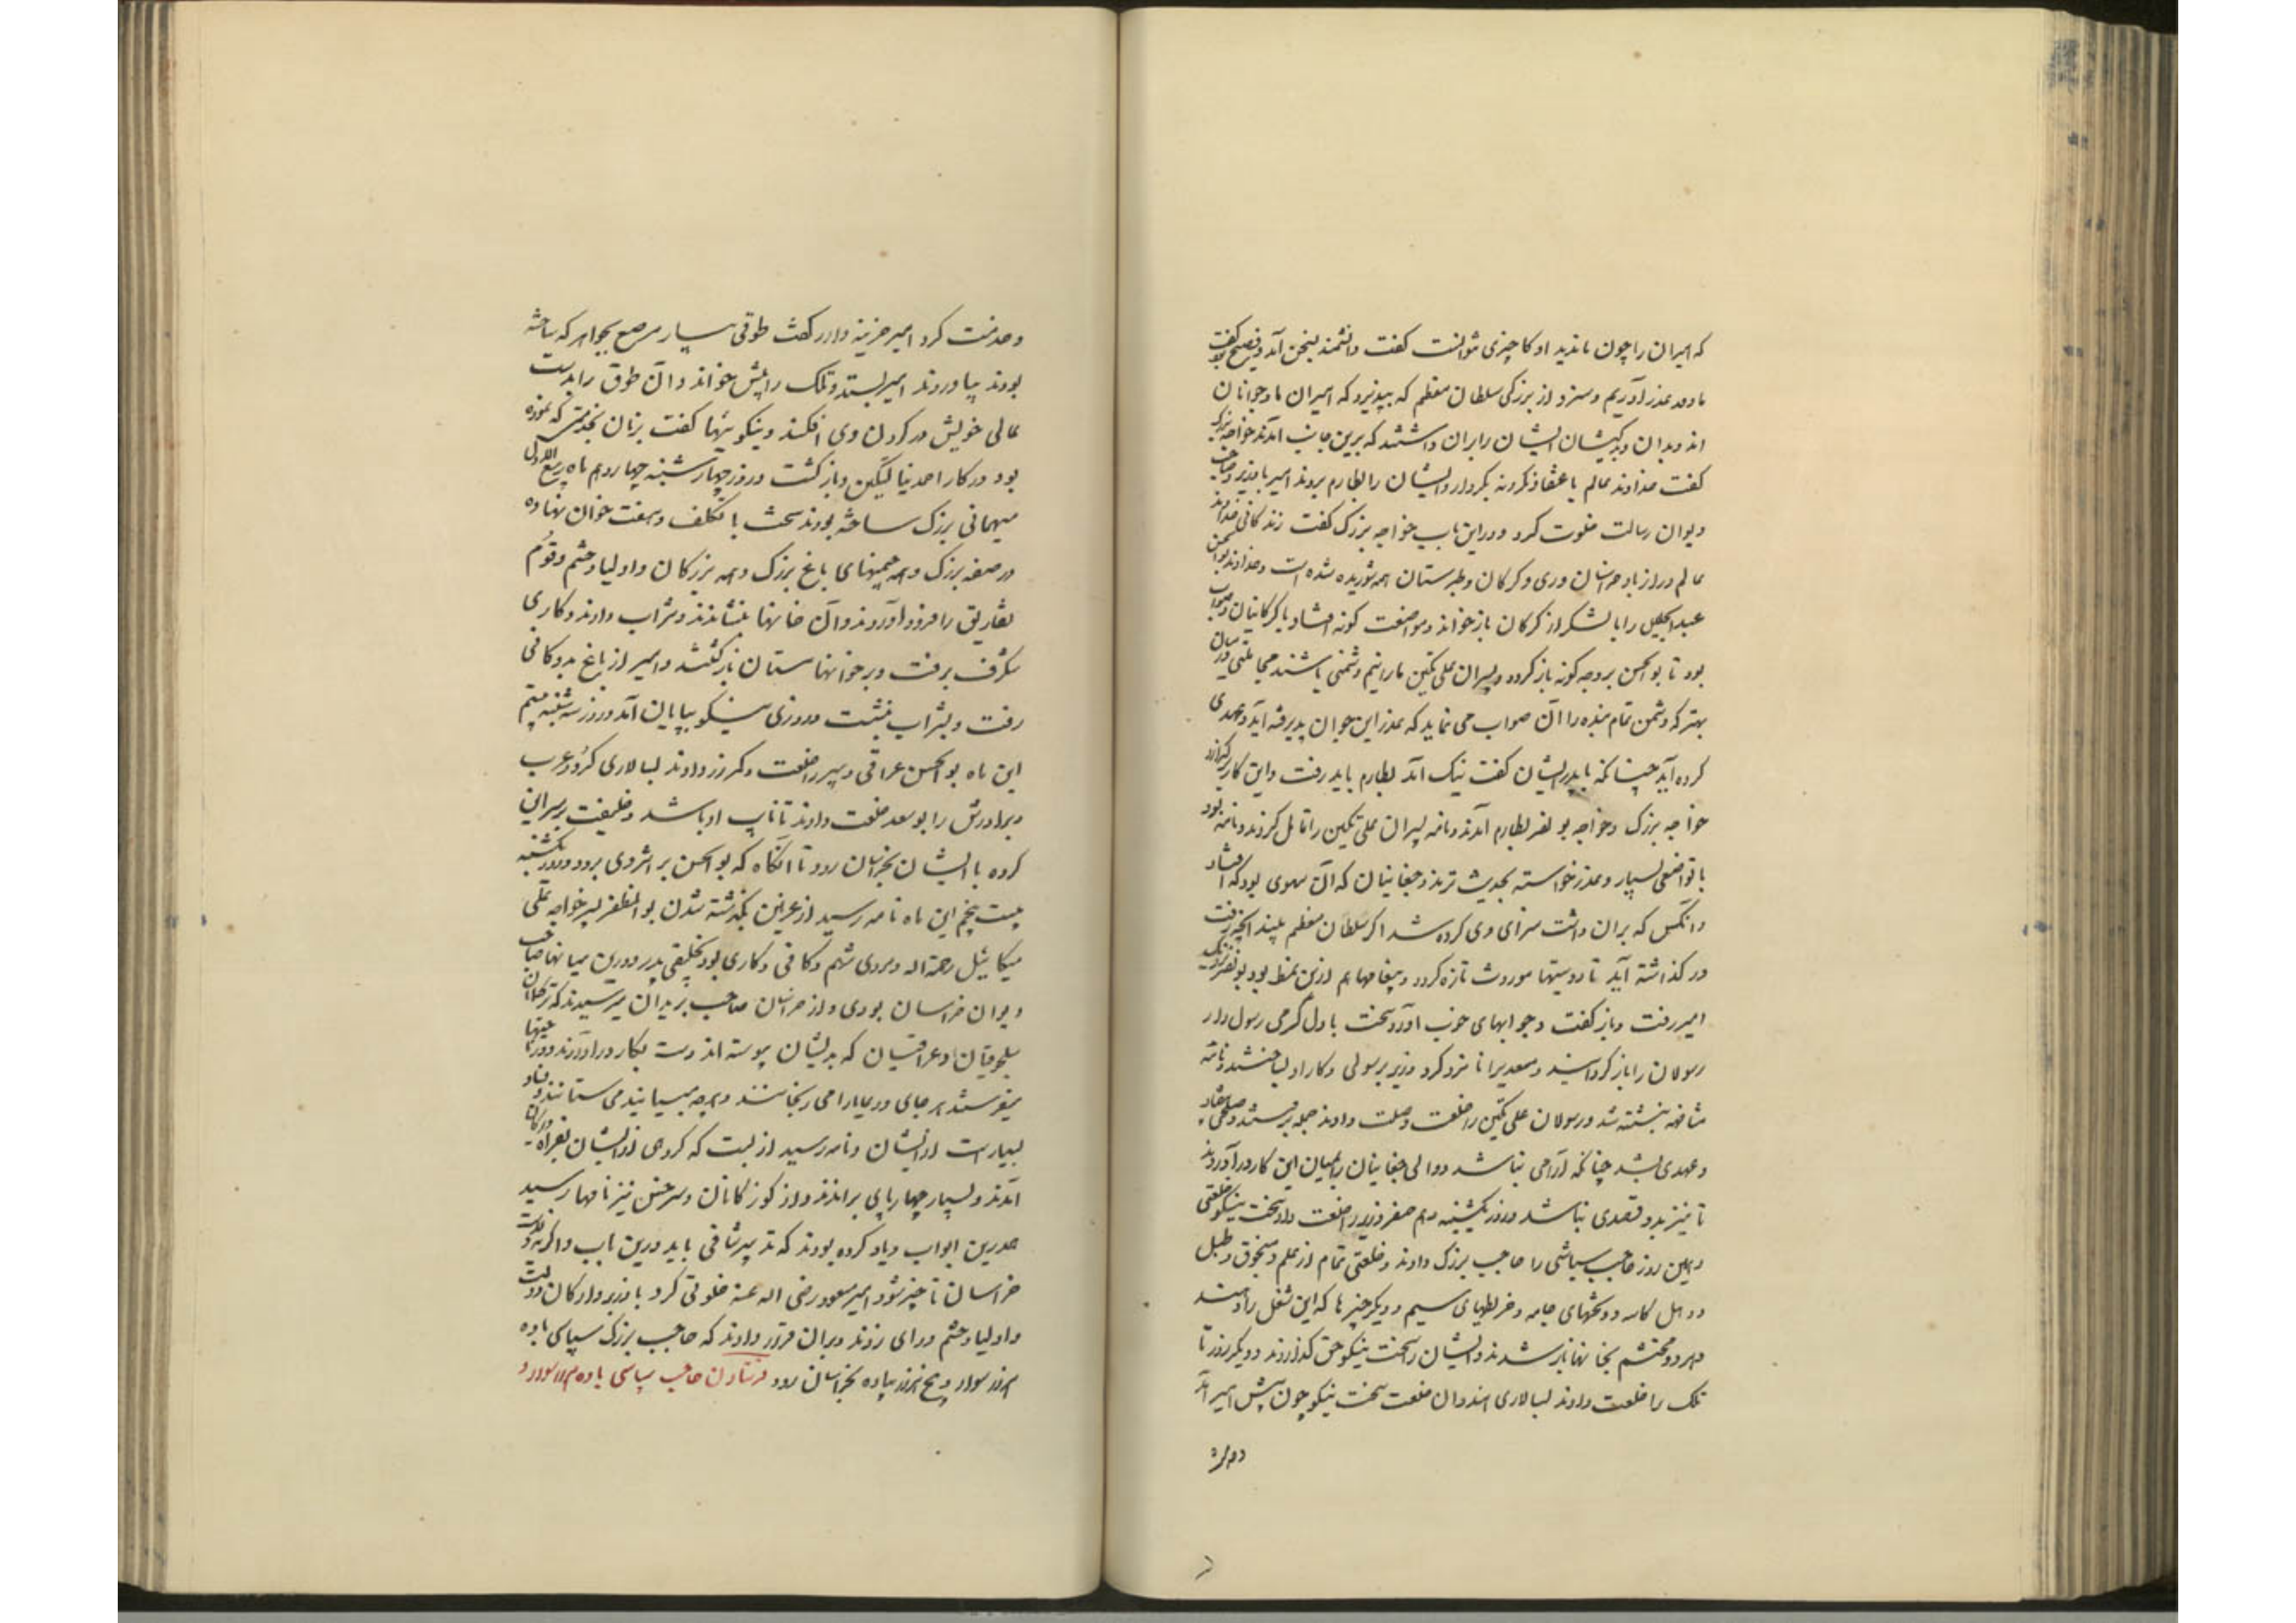 که امیران را چون ماندید او کاچیزی توانست گفت دانشمند بسخن آمد و فصیح بود گفت
ما دمد عذر آوریم و سزد از بزرگی سلطان معظم که بپذیرد که امیران ما جوانان
اند و بدان و بدکیشان ایشان را بران داشتند که برین جانب آمدند خواجه بزرگ
گفت خداوند عالم باعتقاد نگرد نه بکردار و ایشان را بطارم بردند امیر با وزیر و صاحب
دیوان رسالت خلوت کرد و دراین باب خواجه بزرگ گفت زندگانی خداوند
عالم دراز باد خراسان و ری و کرکان و طبرستان همه شوریده شده است و خداوند بوالحسن
عبدالجلیل را با لشکر از کرکان بازخواند و مواضعت گونه افتاد با کرکانیان و صواب
بود تا بوالحسن بر وجه گونه باز گردد و پسران علی تکین ما را نیم دشمنی باشند مجاملتی در میان
بهتر که دشمن تمام بنده را آن صواب می نماید که عذر این جوان پذیرفته آید و عهدی
کرده آید چنانکه با پدر ایشان گفت نیک آمد بطارم باید رفت و این کار
خواجه بزرگ و خواجه بو نصر بطارم آمدند و نامه پسران علی تکین را تامل کردند و نامه بود
با تواضعی بسیار و عذر خواسته بحدیث ترمذ و چغانیان که آن سهوی بود که افتاد
و آنکس که بران داشت سزای وی کرده شد اکر سلطان معظم بیند آنچه رفت
در گذاشته آید تا دوستیها موروث تازه کردد و پیغامها هم ازین نمط بود بو نصر نزدیک
امیر رفت و باز گفت و جوابهای خوب آورد سخت با دل گرمی رسول دار
رسولان را باز کردانید و مسعدی را نامزد کرد وزیر برسولی و کار او بساختند و نامه
مشافهه نبشته شد و رسولان علی تکین را خلعت و صلت دادند
و عهدی بشد چنانکه آرامی باشد و والی چغانیان را بمیان این کار درآوردند
تا نیز بدو قصدی نباشد و روز یکشنبه دهم صفر وزیر را خلعت داد سخت نیکو خلعتی
و همین روز حاجب سباشی را حاجب بزرگ دادند و خلعتی تمام از علم و منجوق و طبل
و دهل کاسه و تختهای جامه و خریطهای سیم و دیکر چیزها که این شغل را دهند
و هر دو محتشم بخانها باز شدند و ایشان را سخت نیکو حق گذاردند و دیگر روز تا
تلک را خلعت دادند بسالاری هندوان خلعت سخت نیکو چون پیش امیر آمد
و خدمت کرد امیر خزینه دار را گفت طوقی بیار مرصع بجواهر که ساخته
بودند بیاوردند امیر بستد و تلک را پیش خواند و آن طوق را بدست
عالی خویش در کردن وی افکند و نیکوئیها گفت بزبان بخدمتی که نموده
بود در کار احمد نیالتکین و باز گشت و روز چهارشنبه چهاردهم ماه ربیع الاول
میهمانی بزرگ ساخته بودند سخت با تکلف و هفت خوان نهاده
در صفه بزرگ و همه چمنهای باغ بزرگ و همه بزرکان و اولیا و حشم و قوم
تفاریق را فرود آوردند و بر آن خوانها بنشاندند و شراب دادند و کاری
شگرف برفت و بر خوانها مستان بازگشتند و امیر از باغ بدوکانی
رفت و بشراب بنشست و روزی نیکو بپایان آمد و روز سه شنبه بیستم
این ماه بوالحسن عراقی دبیر را خلعت و کمر زر دادند بسالاری کرد و عرب
و برادرش را بو سعد خلعت دادند تا نایب او باشد و خلیفت بر سر این
کرده با ایشان بخراسان رود تا آنگاه که بوالحسن بر اثر وی برود و روز یکشنبه
بیست پنجم این ماه نامه رسید از غزنین بگذشته شدن بوالمظفر پسر خواجه علی
میکائیل رحمة الله و مردی شهم و کافی و کاری بود بخلیفتی پدر و درین میانها صاحب
دیوان خراسان بودی و از خراسان صاحب بریدان میرسیدند که ترکمانان
سلجوقیان و عراقیان که بدیشان پیوسته اند دست بکار در آوردند و در ناحیتها
میفرستند هر جای و رعایا را می رنجانند و هر چه می یابند می ستانند و فساد
بسیار است از ایشان و نامه رسید از بست که گروهی از ایشان بفراه
آمدند و بسیار چهارپای براندند و از کوزکانان و سرخس نیز نامها رسید
همدرین ابواب و یاد کرده بودند که تدبیر شافی باید درین باب و اگر نه ولایت
خراسان ناچیز شود امیر مسعود رضی الله عنه خلوتی کرد با وزیر و ارکان دولت
و اولیا و حشم و رای زدند و بران قرار دادند که حاجب بزرگ سباسی با ده
هزار سوار و پنج هزار پیاده بخراسان رود فرستادن حاجب سباسی با ده هزار سوار و